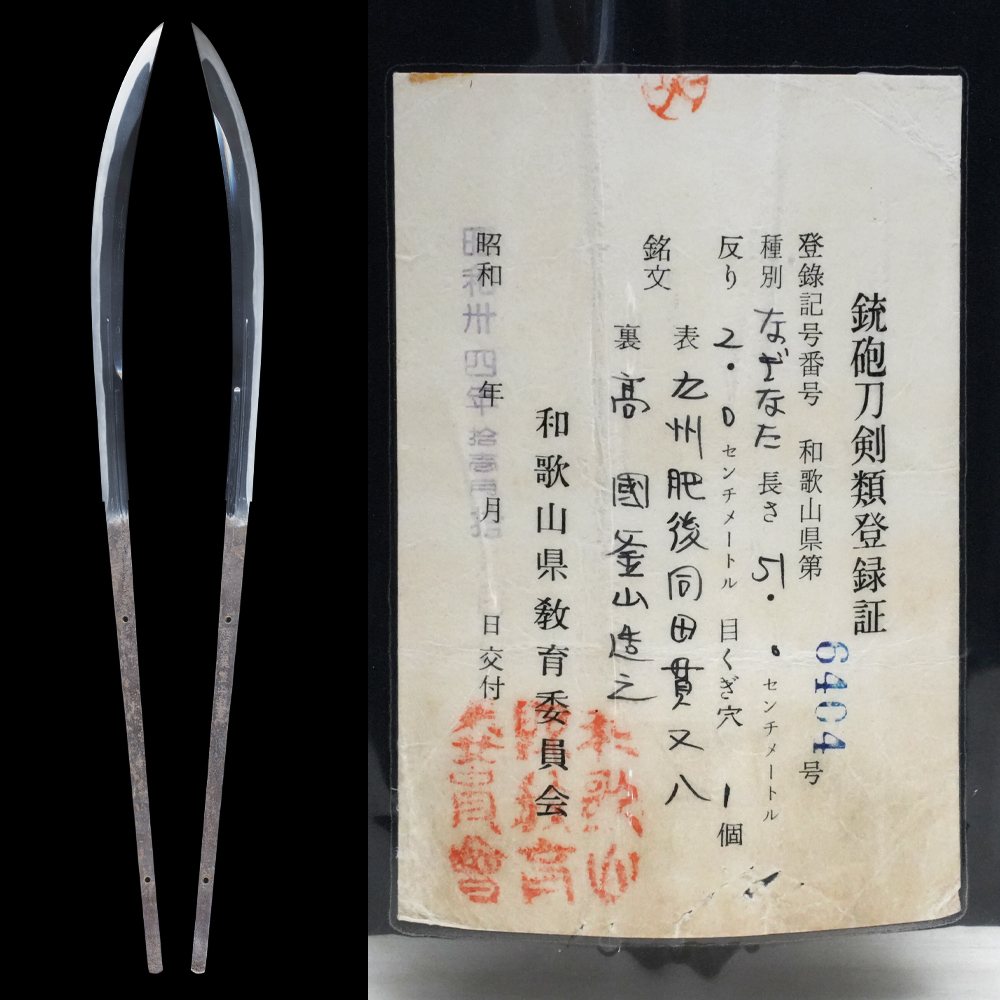 銃砲刀剣類登録証
登錄記号番号 和歌山県第 6404 号
種別 なぎなた 長さ 51. センチメートル
反り 2.0 センチメートル 目くぎ穴 1 個
銘文
表 九州肥後同田貫又八
裏 高 國釜山造之
和歌山県教育委員会
昭和 年 月 日交付
昭和卅四年拾壱月拾